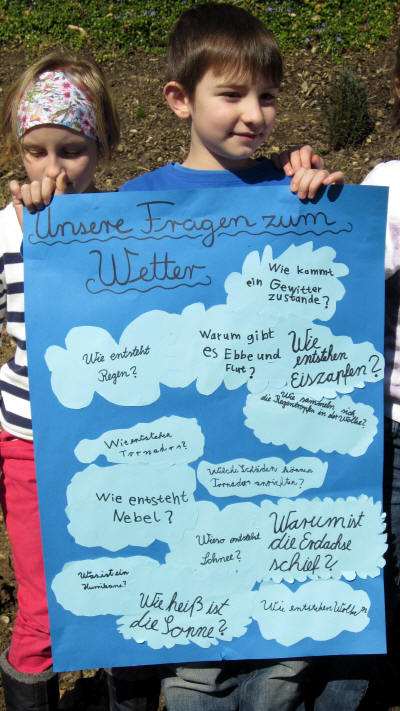 Unsere Fragen zum
Wetter
Wie kommt
ein Gewitter
zustande?
Wie entsteht
Regen?
Warum gibt
es Ebbe und
Flut?
Wie
entstehen
Eiszapfen?
Wie sammeln sich
die Regentropfen in der Wolke?
Wie entstehen
Tornados?
Welche Schäden können
Tornados anrichten?
Wie entsteht
Nebel?
Wieso entsteht
Schnee?
Warum ist
die Erdachse
schief?
Was ist ein
Hurrikane?
Wie heiß ist
die Sonne?
Wie entstehen Wolken